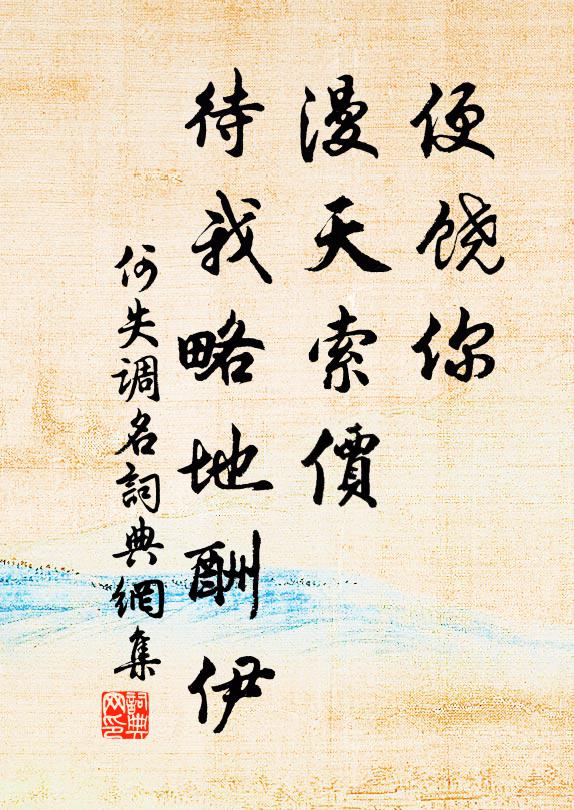 便饶你
漫天索價
待我略地酬伊
何失调名詞典網集
詞典
网印